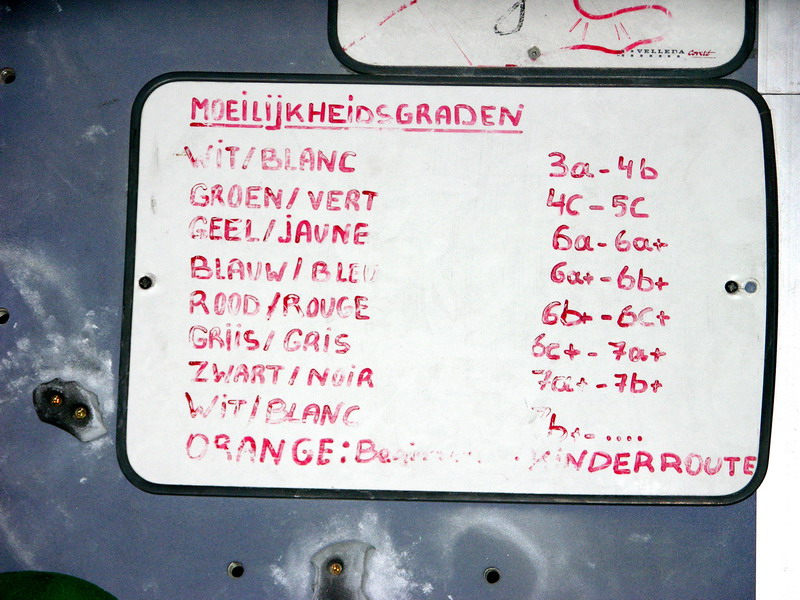 VELLEDA Conté
MOEILIJKHEIDSGRADEN
WIT/BLANC 3a-4b
GROEN/VERT 4c-5c
GEEL/JAUNE 6a-6a+
BLAUW/BLEU 6a+-6b+
ROOD/ROUGE 6b+-6c+
GRIIS/GRIS 6c+-7a+
ZWART/NOIR 7a+-7b+
WIT/BLANC 7b+-....
ORANGE: KINDERROUTE